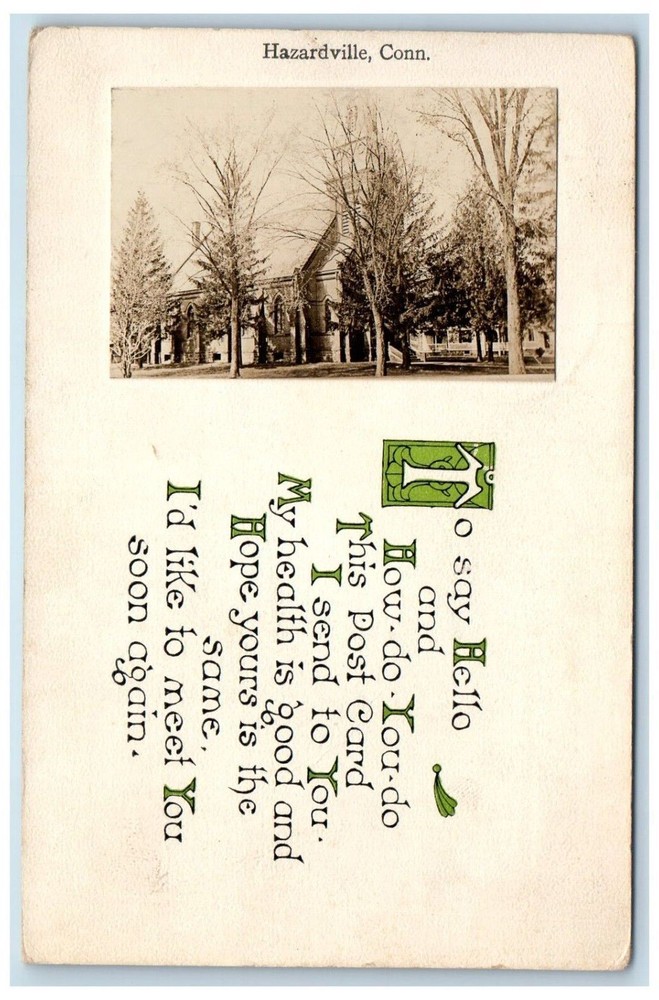 Hazardville, Conn.
To say Hello
and
How-do-You-do
This Post Card
I send to You.
My health is good and
Hope yours is the
same,
I'd like to meet You
soon again.